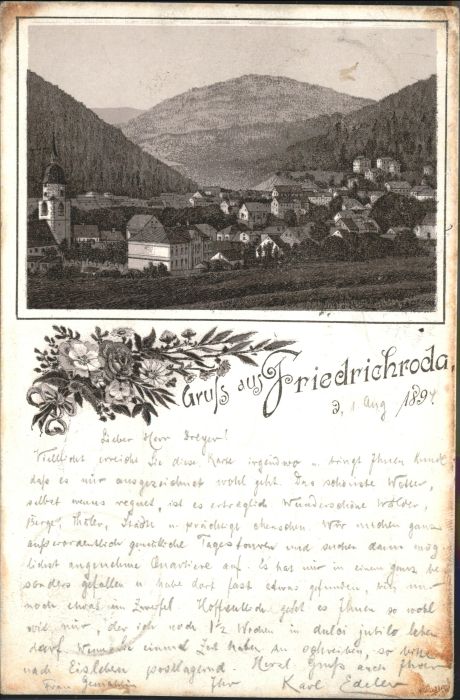 Gruß aus Friedrichroda,
d. 1 Aug 1897
Lieber Herr Dreyer!
Vielleicht erreicht Sie diese Karte irgendwo u. bringt Ihnen Kunde
daß es mir ausgezeichnet wohl geht. Das schönste Wetter,
selbst wenns regnet, ist es erträglich. Wunderschöne Wälder,
Berge, Thäler, Städte u. prächtige Menschen. Wir machen ganz
außerordentlich gemütliche Tagestouren und suchen dann mög
lichst angenehme Quartiere auf. Es hat mir in einem ganz be
sonders gefallen u. habe dort fast etwas gefunden, bin nur
noch etwas im Zweifel. Hoffentlich geht es Ihnen so wohl
wie mir, der ich noch 1½ Wochen in dulci jubilo leben
darf. Wenn Sie einmal Zeit haben zu schreiben, so bitte
nach Eisleben postlagernd. Herzl. Gruß auch Ihrer
Frau Gemahlin Ihr Karl